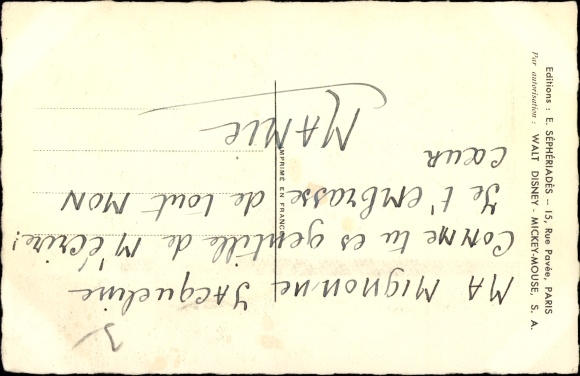 MA Mignonne Jacqueline
COMME tu es gentille de M'ÉCRIRE!
Je t'EMBRASSE de tout MON
CŒUR
MAMIE
IMPRIMÉ EN FRANCE
Editions : E. SÉPHÉRIADÈS – 15, Rue Pavée, PARIS
Par autorisation : WALT DISNEY - MICKEY-MOUSE, S. A.